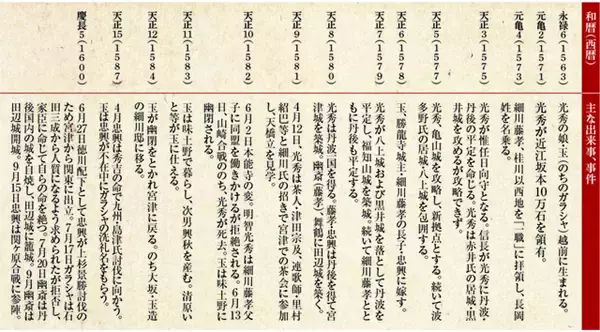 和暦（西暦）
主な出来事、事件
永禄6（1563）
光秀の娘・玉（のちのガラシャ）越前に生まれる。
元亀2（1571）
光秀が近江坂本10万石を領有。
元亀4（1573）
細川藤孝、桂川以西地を「一職」に拝領し、長岡
姓を名乗る。
天正3（1575）
光秀が惟任日向守となる。信長が光秀に丹波・
丹後の平定を命じる。光秀は赤井氏の居城・黒
井城を攻めるが攻略できず。
天正5（1577）
光秀、亀山城を攻略し、新拠点とする。続いて波
多野氏の居城・八上城を包囲する。
天正6（1578）
玉、勝龍寺城主・細川藤孝の長子・忠興に嫁す。
天正7（1579）
光秀が八上城および黒井城を落として丹波を
平定し、福知山城を築城。続いて細川藤孝とと
もに丹後も平定する。
天正8（1580）
光秀は丹波一国を得る。藤孝・忠興は丹後を得て宮
津城を築城、幽斎（藤孝）舞鶴に田辺城を築く。
天正9（1581）
4月12日、光秀は茶人・津田宗及、連歌師・里村
紹巴等と細川氏の招きで宮津での茶会に参加
し、天橋立を見学。
天正10（1582）
6月2日本能寺の変。明智光秀は細川藤孝父
子に同盟を働きかけるが拒絶される。6月13
日、山崎合戦ののち、光秀が死去。玉は味土野に
幽閉される。
天正11（1583）
玉は味土野で暮らし、次男興秋を産む。清原い
と等が玉に仕える。
天正12（1584）
玉が幽閉をとかれ宮津に戻る。のち大坂・玉造
の細川邸に移る。
天正15（1587）
4月忠興は秀吉の命で九州・島津氏討伐に向かう。
玉は忠興が不在中にガラシャの洗礼名をもらう。
慶長5（1600）
6月27日徳川配下として忠興が上杉景勝討伐の
ため宮津から関東に出立。7月17日ガラシャは石
田三成から人質になるよう求められたが拒否し、
家臣に命じて自らの命を絶つ。7月20日幽斎は丹
後国内の城を自焼し、田辺城に籠城。9月幽斎は
田辺城開城。9月15日忠興は関ヶ原合戦に参陣。